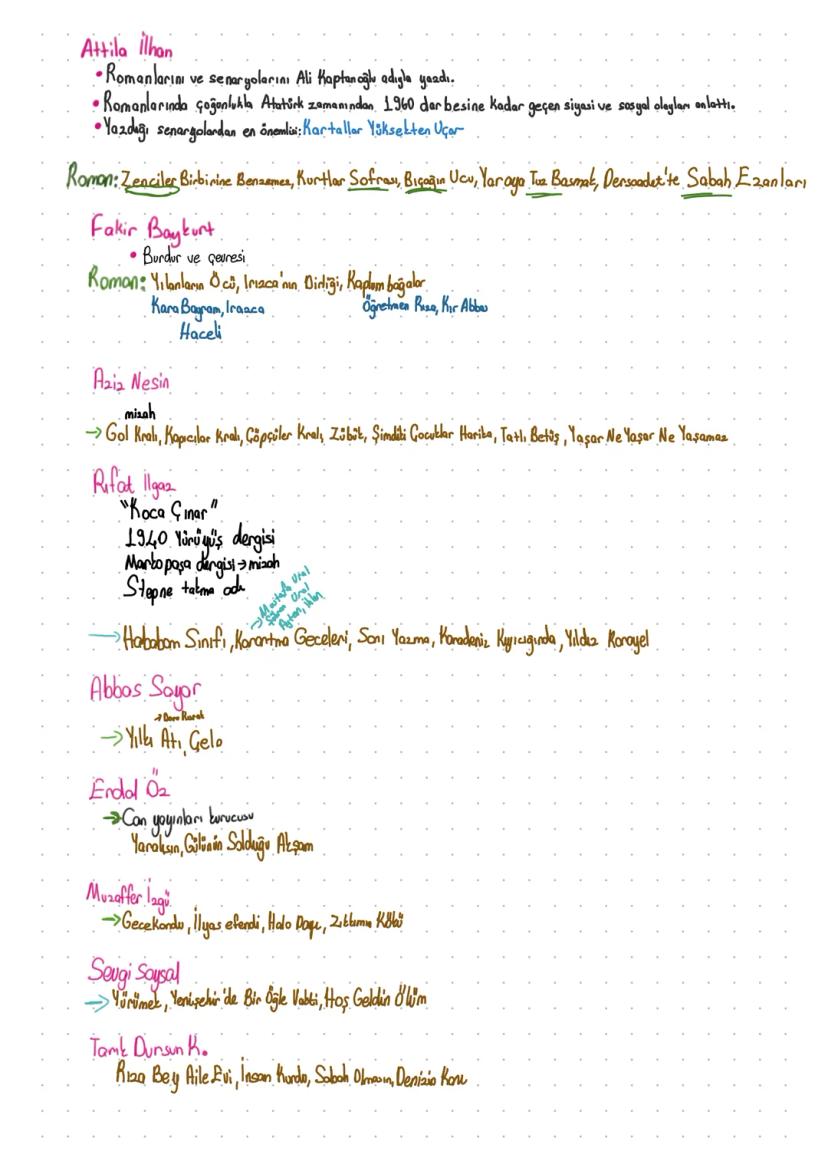 Attila İlhan
• Romanlarını ve senaryolarını Ali Kaptanoğlu adıyla yazdı.
• Romanlarında çoğunlukla Atatürk zamanından 1960 darbesine kadar geçen siyasi ve sosyal olayları anlattı.
• Yazdığı senaryolardan en önemlisi: Kartallar Yüksekten Uçar
Roman: Zenciler Birbirine Benzemez, Kurtlar Sofrası, Bıçağın Ucu, Yaraya Tuz Basmak, Dersaadet'te Sabah Ezanları
Fakir Baykurt
• Burdur ve çevresi
Roman: Yılanların Öcü, Irazca'nın Dirliği, Kaplumbağalar
Kara Bayram, Irazca Öğretmen Rıza, Kır Abbas
Haceli
Aziz Nesin
mizah
→ Gol Kralı, Kapıcılar Kralı, Çöpçüler Kralı, Zübük, Şimdiki Çocuklar Harika, Tatlı Betüş, Yaşar Ne Yaşar Ne Yaşamaz
Rıfat Ilgaz
"Koca Çınar"
1940 Yürüyüş dergisi
Markopaşa dergisi → mizah
Stepne takma adı
→ Mustafa Ural
→ Hababam Sınıfı, Karartma Geceleri, Sarı Yazma, Karadeniz Kıyıcığında, Yıldız Karayel
Abbas Sayar
→ Yılkı Atı, Çelo
Erdal Öz
→ Can yayınları kurucusu
Yaralısın, Gülünün Solduğu Akşam
Muzaffer İzgü
→ Gecekondu, İlyas efendi, Halo Dayı, Zıkkımın Kökü
Sevgi Soysal
→ Yürümek, Yenişehir'de Bir Öğle Vakti, Hoş Geldin Ölüm
Tarık Dursun K.
Rıza Bey Aile Evi, İnsan Kurdu, Sabah Olmasın, Denizin Kanı